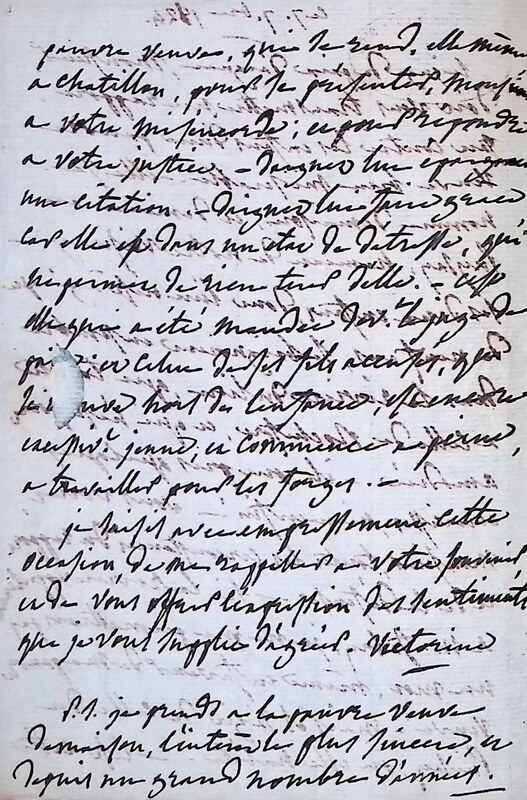 pauvre veuve, qui se rend, elle même
a chatillon, pour se présenter, Monsieur
a votre miséricorde; et pour repondre
a votre justice. – daignez lui épargner
une citation. – daignez lui faire grace
car elle est dans un état de détresse, qui
ne permet de rien tirer d'elle. – c'est
elle qui a été mandée dev.t le juge de
paix; et celui de ses fils accusés, qui
se trouve hors de l'enfance, est encore
excessiv.t jeune; et commence a peine,
a travailler pour les forges. –
je saisis avec empressement cette
occasion de me rappeller a votre souvenir
et de vous offrir l'expression des sentiments
que je vous supplie d'agréer. Victorine
P.S. je prends a la pauvre veuve
demaison, l'intérêt le plus sincere, et
depuis un grand nombre d'années.